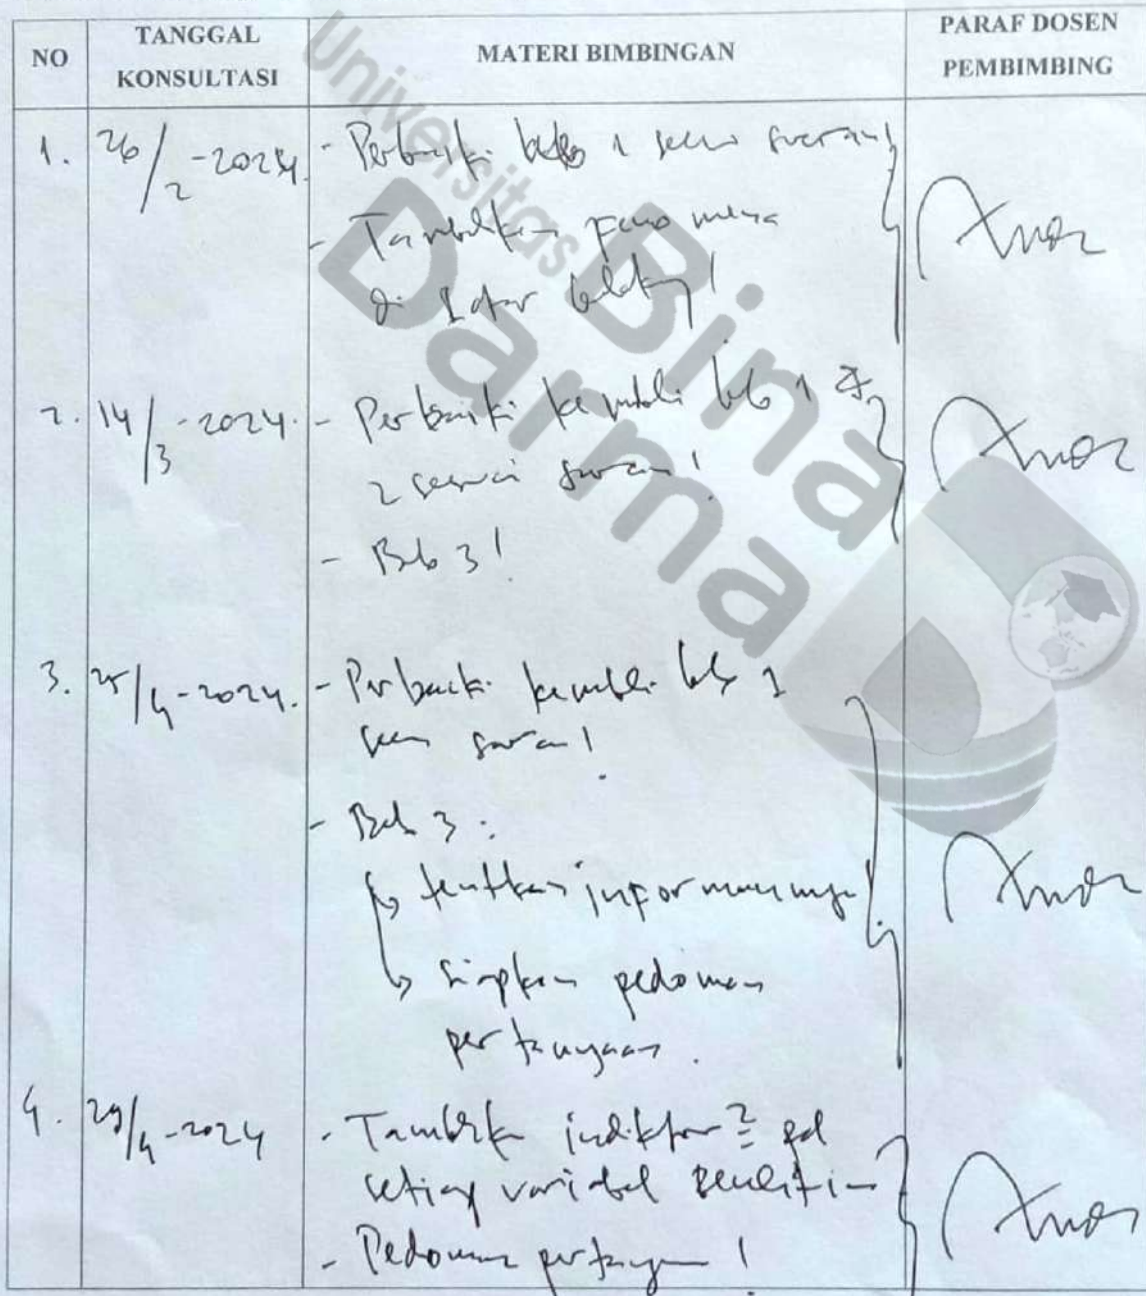 NO
TANGGAL KONSULTASI
MATERI BIMBINGAN
PARAF DOSEN PEMBIMBING
Universitas
Bina
Darma
1. 26/2-2024
- Perbaiki bab 1 saran!
- Tambahkan fenomena
di latar belakang!
2. 14/3-2024.
- Perbaiki kembali bab 1 &
2 sesuai saran!
- Bab 3!
3. 25/4-2024.
- Perbaiki kembali bab 1
saran!
- Bab 3:
↳ tentukan informannya!
↳ siapkan pedoman
pertanyaan.
4. 29/4-2024
- Tambahkan indikator2 pd
setiap variabel penelitian
- Pedoman pertanyaan!